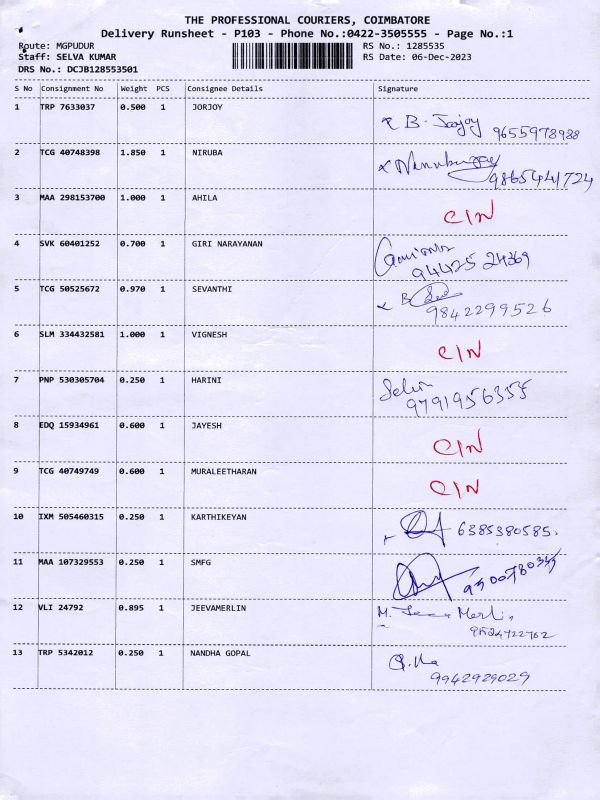 THE PROFESSIONAL COURIERS, COIMBATORE
Delivery Runsheet - P103 - Phone No.:0422-3505555 - Page No.:1
Route: MGPUDUR RS No.: 1285535
Staff: SELVA KUMAR RS Date: 06-Dec-2023
DRS No.: DCJB128553501
S No Consignment No Weight PCS Consignee Details Signature
1 TRP 7633037 0.500 1 JORJOY
B. Jorjoy 9655978988
2 TCG 40748398 1.850 1 NIRUBA
9865441724
3 MAA 298153700 1.000 1 AHILA
C/N
4 SVK 60401252 0.700 1 GIRI NARAYANAN
94425 24369
5 TCG 50525672 0.970 1 SEVANTHI
B
9842299526
6 SLM 334432581 1.000 1 VIGNESH
C/N
7 PNP 530305704 0.250 1 HARINI
9791956355
8 EDQ 15934961 0.600 1 JAYESH
C/N
9 TCG 40749749 0.600 1 MURALEETHARAN
C/N
10 IXM 505460315 0.250 1 KARTHIKEYAN
6385380585.
11 MAA 107329553 0.250 1 SMFG
12 VLI 24792 0.895 1 JEEVAMERLIN
M. Merlin
13 TRP 5342012 0.250 1 NANDHA GOPAL
9942929029